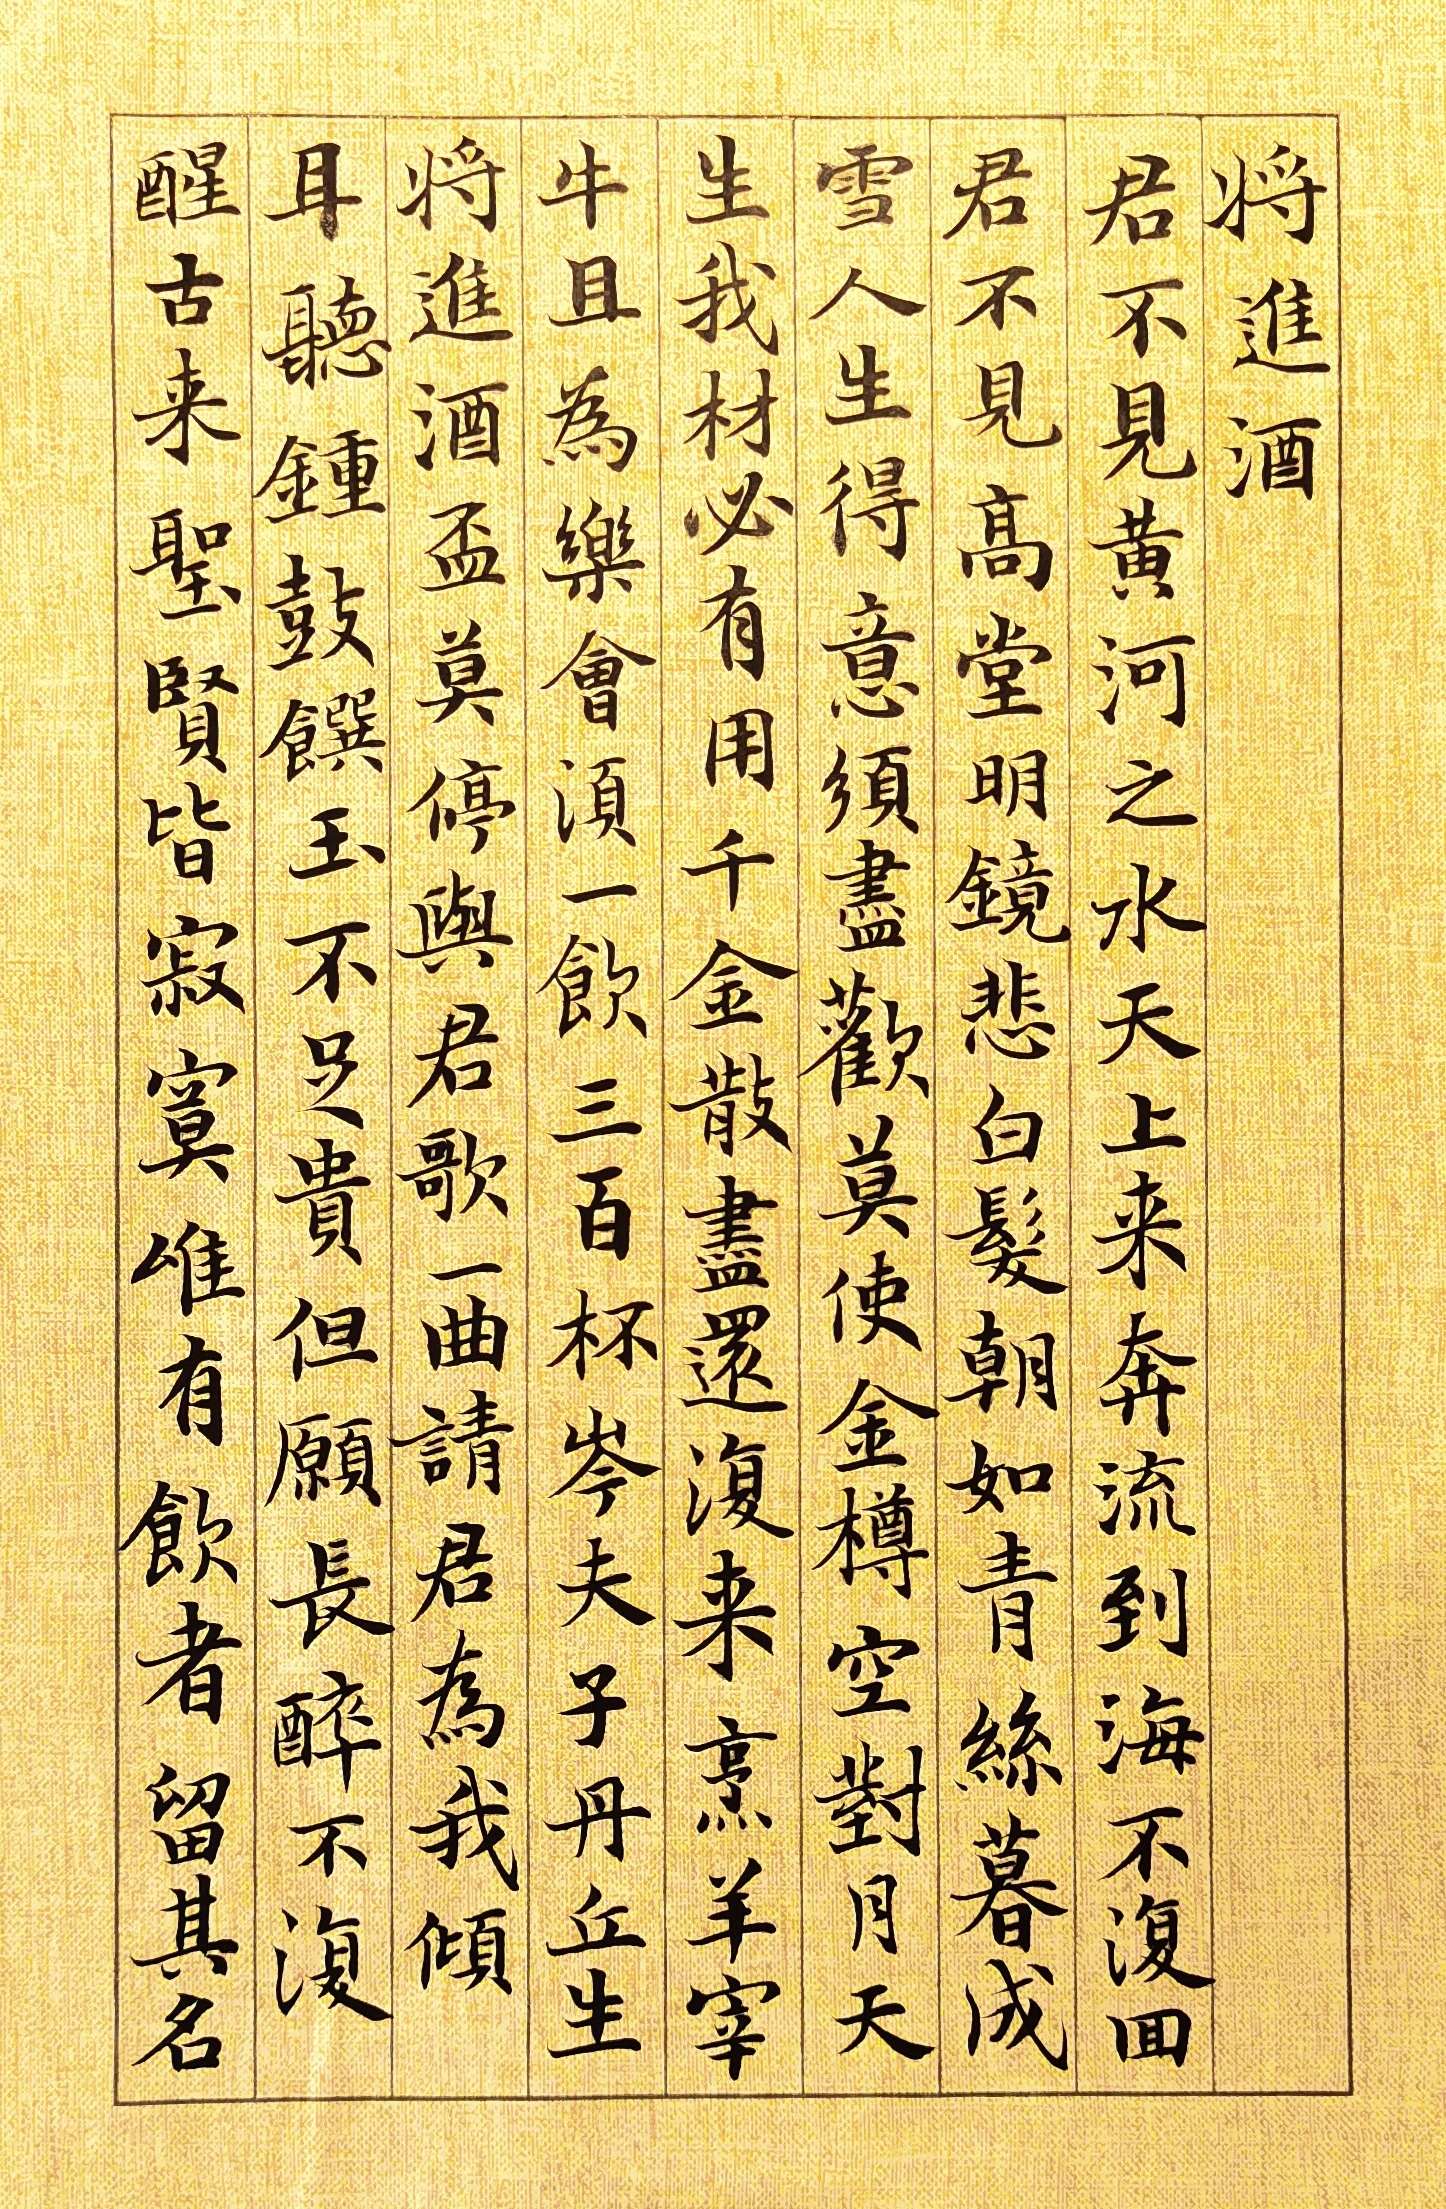 将進酒
君不見黄河之水天上来奔流到海不復回
君不見高堂明鏡悲白髮朝如青絲暮成
雪人生得意須盡歡莫使金樽空對月天
生我材必有用千金散盡還復来烹羊宰
牛且為樂會須一飲三百杯岑夫子丹丘生
将進酒盃莫停與君歌一曲請君為我傾
耳聽鍾鼓饌玉不足貴但願長醉不復
醒古来聖賢皆寂寞唯有飲者留其名